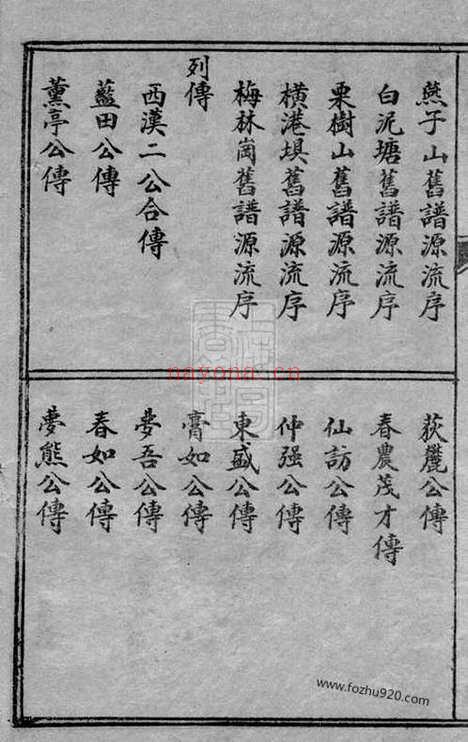 燕子山舊譜源流序
白泥塘舊譜源流序
栗樹山舊譜源流序
橫港垻舊譜源流序
梅林崗舊譜源流序
列傳
西漢二公合傳
藍田公傳
薰亭公傳
荻麓公傳
春農茂才傳
仙訪公傳
仲强公傳
東盛公傳
膏如公傳
夢吾公傳
春如公傳
夢熊公傳
nayona.cn
www.fozhu920.com